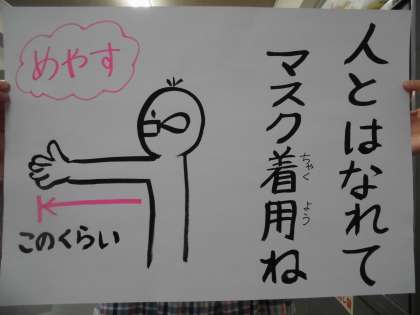 人とはなれて
マスク着用ね
ちゃく
よう
めやす
このくらい